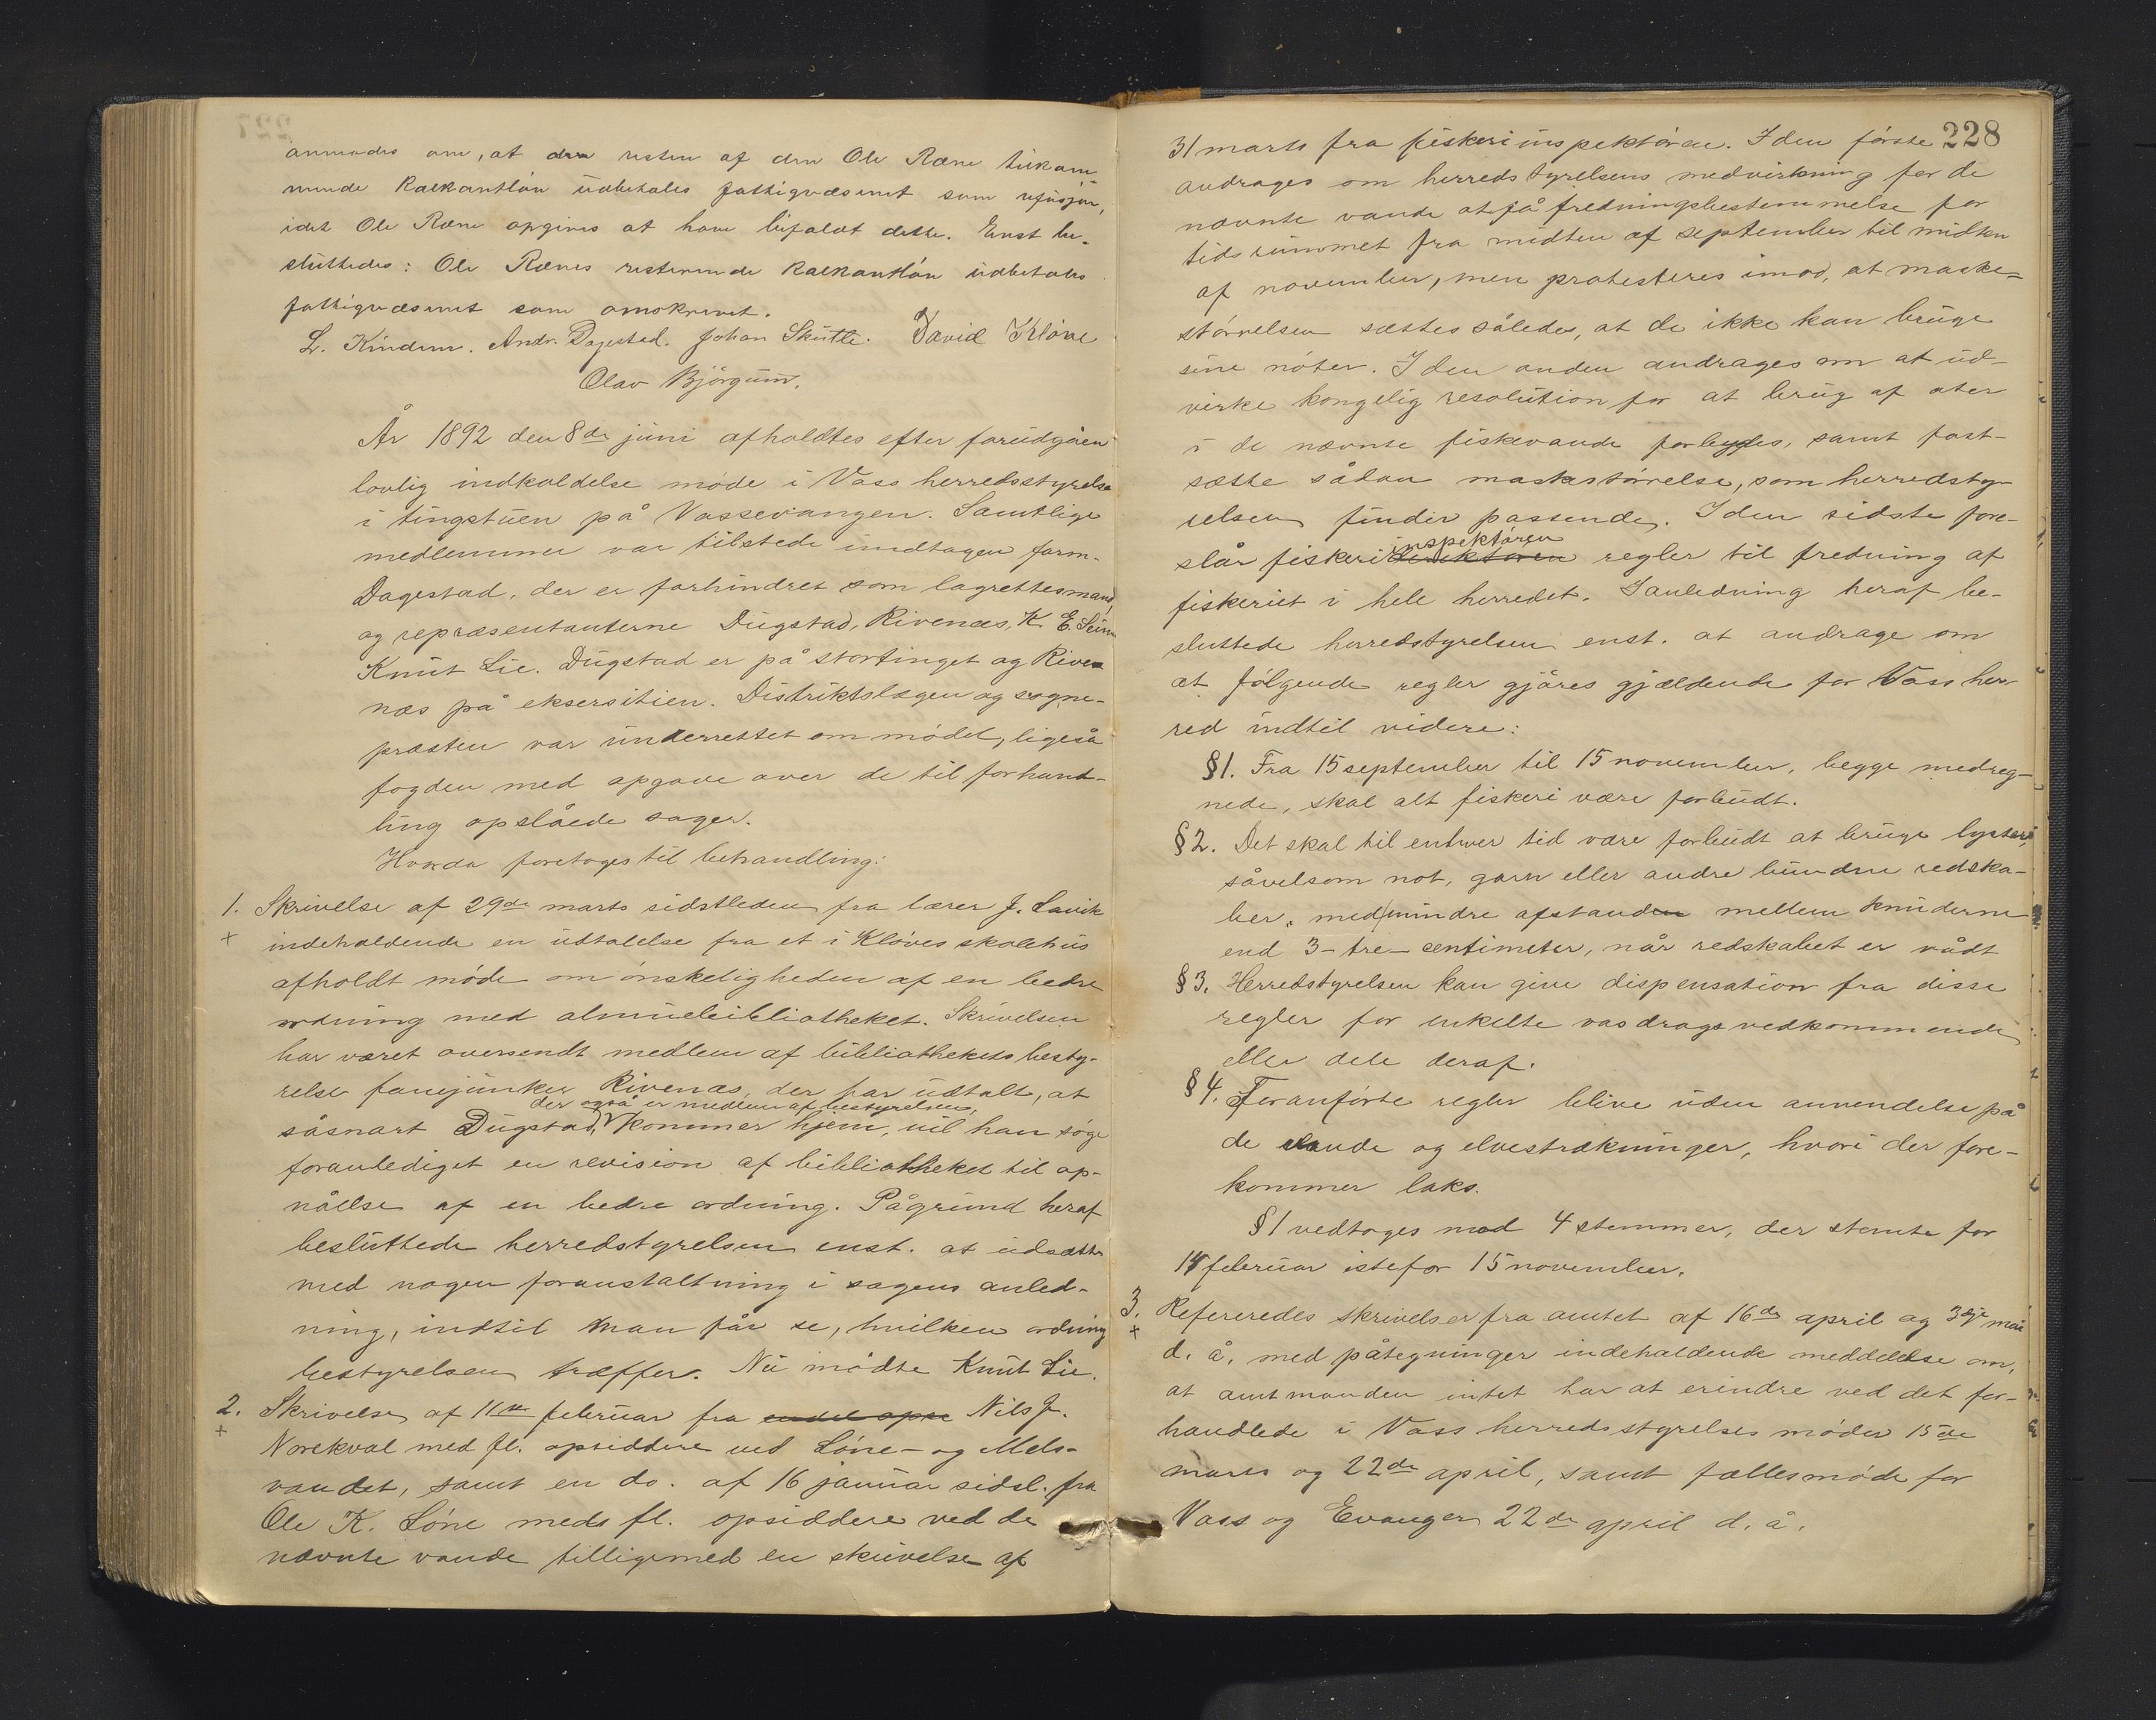 anmodes om, at den resten af den Ole Rene tilkom-
mende kalkantløn udbetales fattigvæsenet som refusjon,
idet Ole Rene opgives at have bifaldt dette. Enst. be-
sluttedes: Ole Renes resterende kalkantløn udbetales
fattigvæsenet som omskrevet.
L. Kindem. Andr. Dagestad. Johan Skutle. David Kløve
Olav Bjørgum.
År 1892 den 8de juni afholdtes efter forudgåen
lovlig indkaldelse møde i Voss herredsstyrelse
i tingstuen på Vossevangen. Samtlige
medlemmer var tilstede undtagen form.
Dagestad, der er forhindret som lagrettesmand,
og repræsentanterne Dugstad, Rivenæs, K. E. Seim
Knut Lie. Dugstad er på stortinget og Rive-
næs på eksersitien. Distriktslægen og sogne-
præsten var underrettet om mødet, ligeså
fogden med opgave over de til forhand-
ling opslåede sager.
Hvorda foretoges til behandling:
1. Skrivelse af 29de marts sidstleden fra lærer J. Lavik
+ indeholdende en udtalelse fra et i Kløves skolehus
afholdt møde om ønskeligheden af en bedre
ordning med almuebibliotheket. Skrivelsen
har været oversendt medlem af bibliothekets besty-
relse fanejunker Rivenæs, der har udtalt, at
der også er medlem af bestyrelsen,
såsnart Dugstad, kommer hjem, vil han søge
foranlediget en revision af bibliotheket til op-
nåelse af en bedre ordning. På grund heraf
besluttede herredstyrelsen enst. at udsætte
med nogen foranstaltning i sagens anled-
ning, indtil man får se, hvilken ordning
bestyrelsen træffer. Nu mødte Knut Lie.
2. Skrivelse af 11te februar fra endel opsi Nils J.
+ Norekval med fl. opsiddere ved Løne- og Mels-
vandet, samt en do. af 16 januar sidsl. fra
Ole K. Løne meds fl. opsiddere ved de
nævnte vande tilligemed en skrivelse af
228
31 marts fra fiskeriinspektøren. I den første
andrages om herredstyrelsens medvirkning for de
nævnte vande at få fredningsbestemmelse for
tidsrummet fra midten af september til midten
af november, men protesteres imod, at maske-
størrelsen sættes således, at de ikke kan bruge
sine nøter. I den anden andrages om at ud-
virke kongelig resolution for at brug af oter
i de nævnte fiskevande forbydes, samt fast-
sætte sådan maskestørrelse, som herredsty-
relsen finder passende. I den sidste fore-
inspektøren
slår fiskeridirektøren regler til fredning af
fiskeriet i hele herredet. I anledning heraf be-
sluttede herredstyrelsen enst. at andrage om
at følgende regler gjøres gjældende for Voss her-
red indtil videre:
§1. Fra 15 september til 15 november, begge medreg-
nede, skal alt fiskeri være forbudt.
§2. Det skal til enhver tid være forbudt at bruge lyster,
såvelsom not, garn eller andre bundne redska-
ber, med mindre afstanden mellem knuderne
end 3 - tre - centimeter, når redskabet er vådt
§3. Herredstyrelsen kan give dispensation fra disse
regler for enkelte vasdrags vedkommende
eller dele deraf.
§4. Foranførte regler blive uden anvendelse på
de vande og elvestrækninger, hvori der fore-
kommer laks.
§1 vedtoges mod 4 stemmer, der stemte for
14 februar istefor 15 november.
3. Refereredes skrivelser fra amtet af 16de april og 3dje mai
+ d. å. med påtegninger indeholdende meddelelse om,
at amtmanden intet har at erindre ved det for-
handlede i Voss herredsstyrelses møder 15de
marts og 22de april, samt fællesmøde for
Voss og Evanger 22de april d. å.